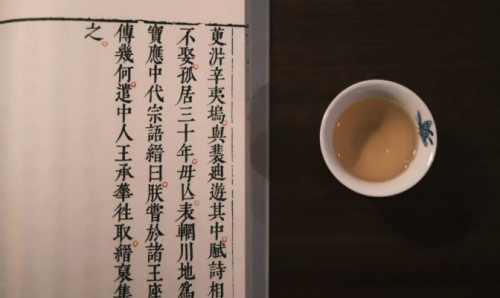 萸沜辛夷塢。與裴廸遊其中。賦詩相
不娶。孤居三十年。母亾。表輞川地爲
寶應中代宗語縉曰。朕嘗於諸王座
傳幾何。遣中人王承華徃取。縉裒集
之。